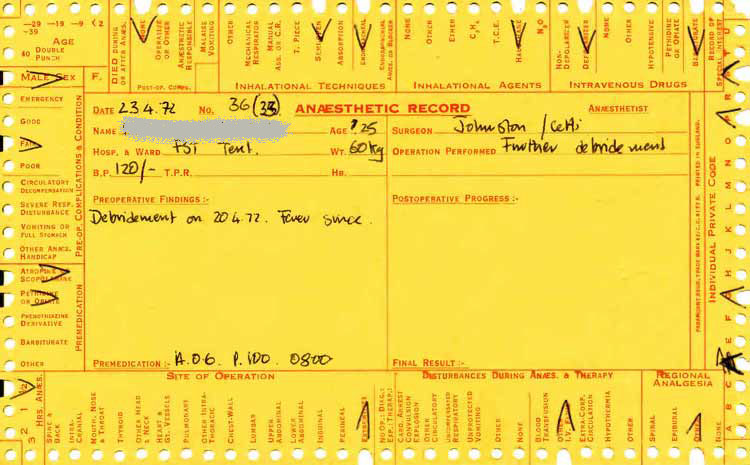 -29 -19 -9 <2
-39
AGE
40 DOUBLE
PUNCH
DIED DURING
OR AFTER ANÆS.
NONE
OPERATIVE
OR OTHER
ANÆSTHETIC
RESPONSIBLE
MALAISE
VOMITING
POST-OP. COMPS.
OTHER
MECHANICAL
RESPIRATOR
MANUAL
ASS. OR C.R.
T. PIECE
ABSORPTION
INHALATIONAL TECHNIQUES
NONE
OTHER
ETHER
C₃H₆
T.C.E.
N₂O
INHALATIONAL AGENTS
NON-
DEPOLARIZER
DEPOLARIZER
NONE
OTHER
HYPOTENSIVE
PETHIDINE
OR OPIATE
BARBITURATE
INTRAVENOUS DRUGS
RECORD OF
SPECIAL INTEREST
MALE SEX F.
EMERGENCY
GOOD
FAIR
POOR
CIRCULATORY
DECOMPENSATION
SEVERE RESP.
DISTURBANCE
VOMITING OR
FULL STOMACH
OTHER ANÆS.
HANDICAP
PRE-OP. COMPLICATIONS & CONDITION
ATROPINE
SCOPOLAMINE
PETHIDINE
OR OPIATE
PHENOTHIAZINE
DERIVATIVE
BARBITURATE
OTHER
PREMEDICATION
DATE 23.4.72 No. 36 (33) ANÆSTHETIC RECORD ANÆSTHETIST
NAME AGE ? 25 SURGEON Johnston / Cetti
HOSP. & WARD FST Tent. WT. 60kg OPERATION PERFORMED Further debridement
B.P. 120/- T.P.R. HB.
PREOPERATIVE FINDINGS :- POSTOPERATIVE PROGRESS :-
Debridement on 20.4.72. Fever since.
PREMEDICATION :- A.0.6. P.100. 0800 FINAL RESULT :-
INDIVIDUAL PRIVATE CODE
3 2 1 ½
HRS. ANÆS.
SITE OF OPERATION
SPINE &
BACK
INTRA-
CRANIAL
MOUTH, NOSE
& THROAT
THYROID
OTHER HEAD
& NECK
HEART &
GT. VESSELS
PULMONARY
OTHER INTRA-
THORACIC
CHEST-WALL
LUMBAR
UPPER
ABDOMINAL
LOWER
ABDOMINAL
INGUINAL
PERINEAL
EXTREMITIES
DISTURBANCES DURING ANÆS. & THERAPY
CARD. ARREST
CONVULSION
EXPLOSION
OTHER
CIRCULATORY
UNCOMPENSATED
RESPIRATORY
UNPROVOKED
VOMITING
OTHER
NONE
BLOOD
TRANSFUSION
EXTRA-CORP.
CIRCULATION
HYPOTHERMIA
OTHER
REGIONAL
ANALGESIA
SPINAL
EPIDURAL
OTHER